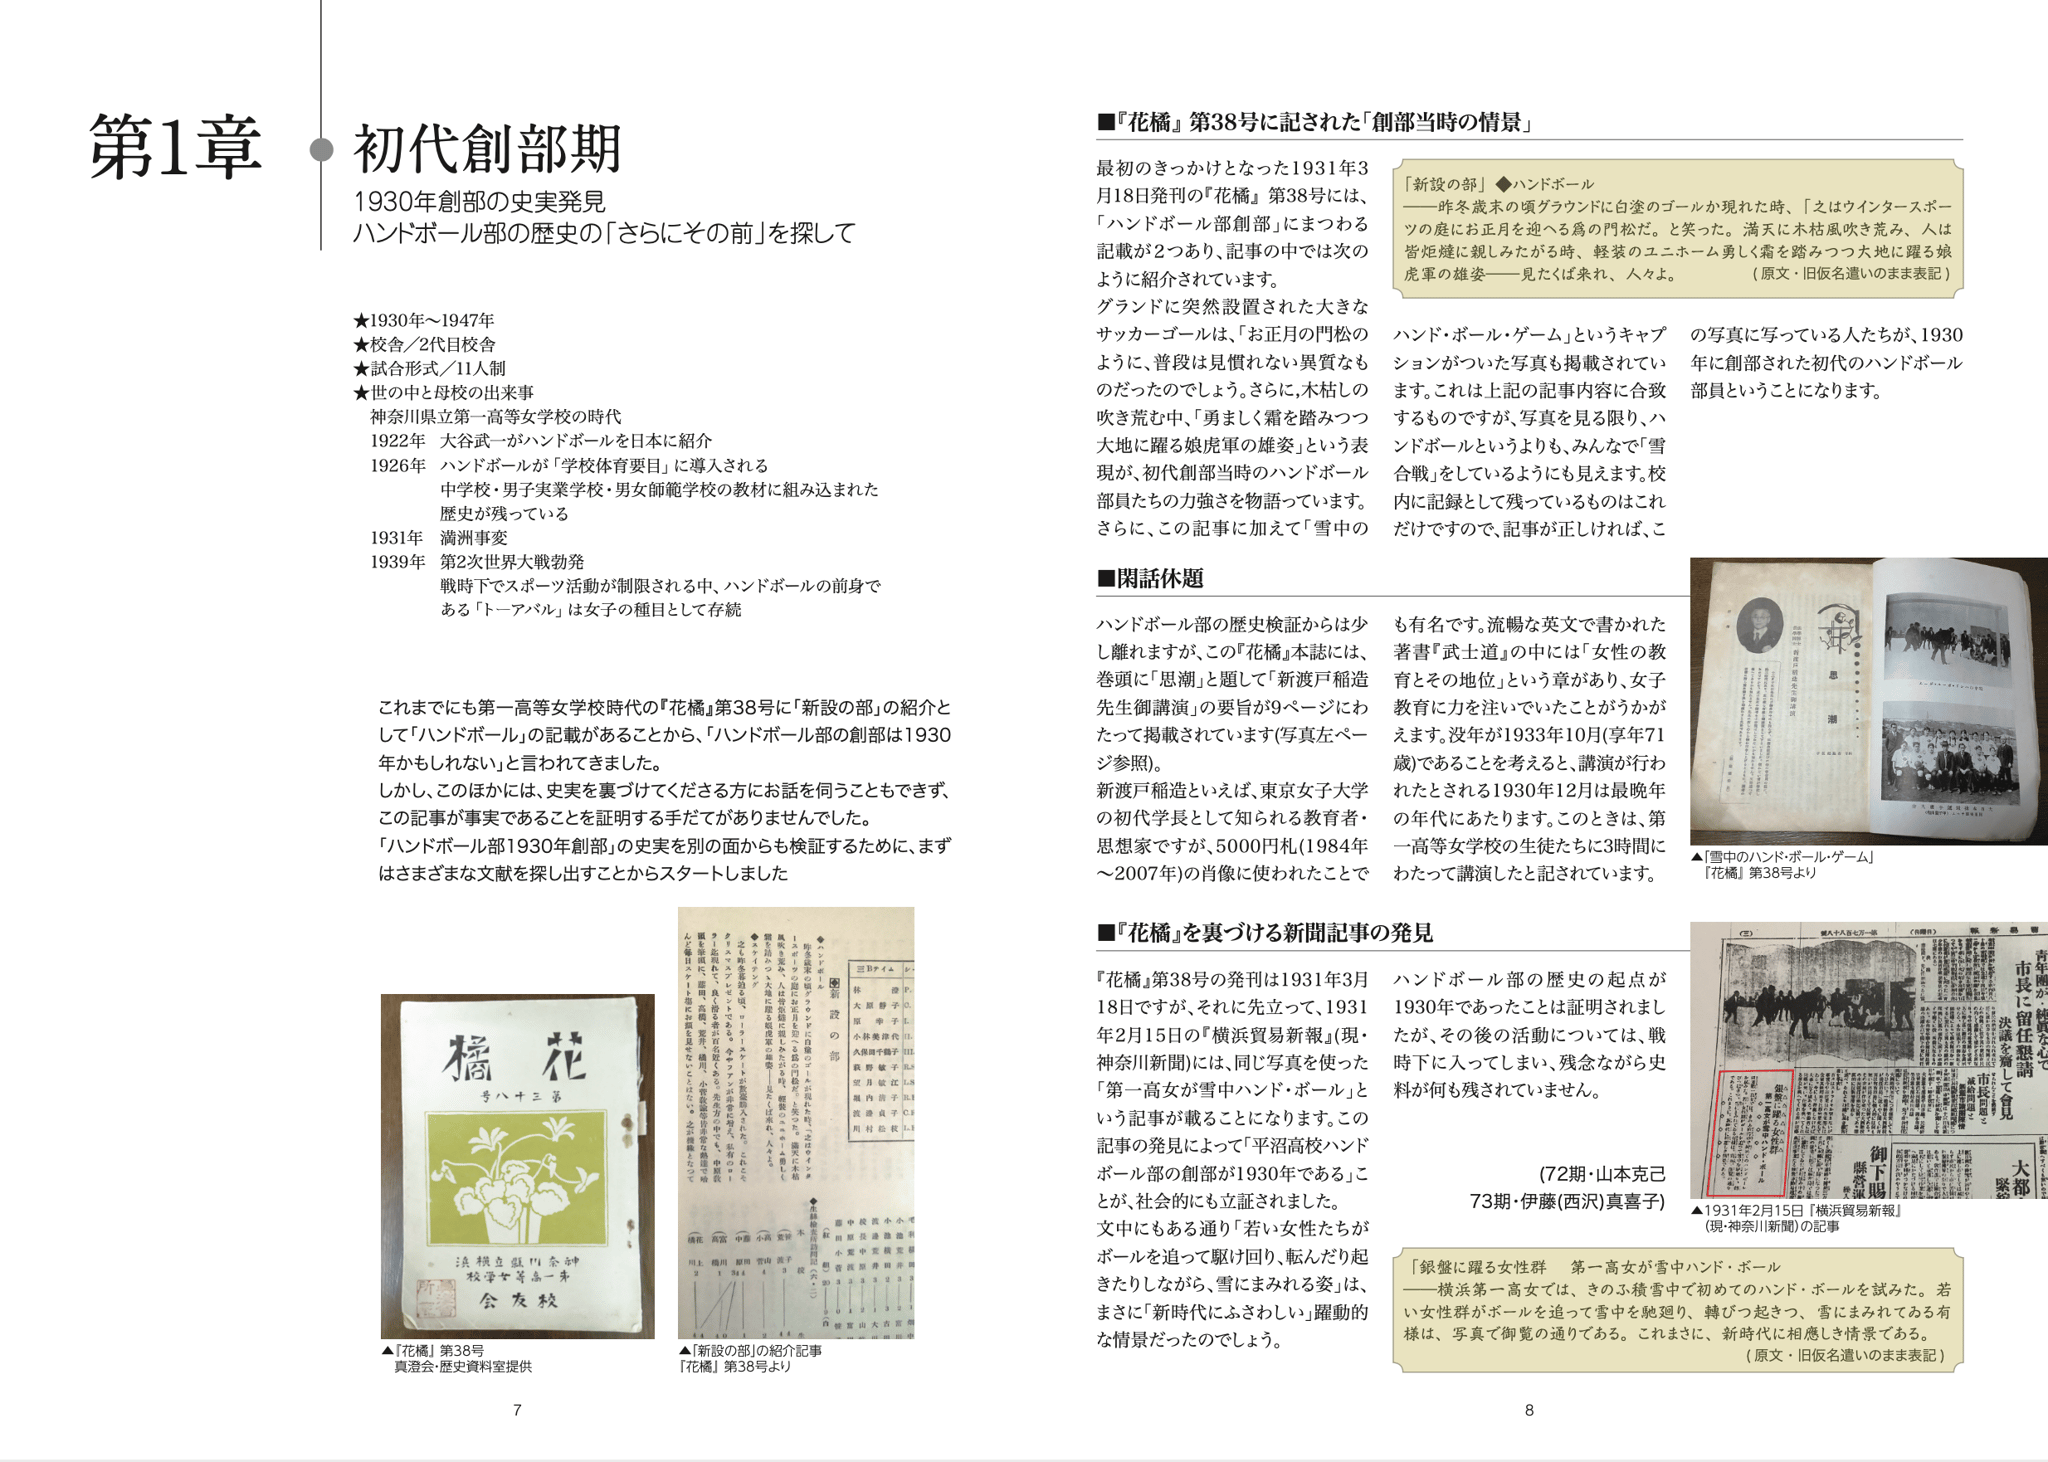 第1章
初代創部期
1930年創部の史実発見
ハンドボール部の歴史の「さらにその前」を探して
★1930年～1947年
★校舎／2代目校舎
★試合形式／11人制
★世の中と母校の出来事
神奈川県立第一高等女学校の時代
1922年 大谷武一がハンドボールを日本に紹介
1926年 ハンドボールが「学校体育要目」に導入される
中学校・男子実業学校・男女師範学校の教材に組み込まれた
歴史が残っている
1931年 満洲事変
1939年 第2次世界大戦勃発
戦時下でスポーツ活動が制限される中、ハンドボールの前身で
ある「トーアバル」は女子の種目として存続
これまでにも第一高等女学校時代の『花橘』第38号に「新設の部」の紹介と
して「ハンドボール」の記載があることから、「ハンドボール部の創部は1930
年かもしれない」と言われてきました。
しかし、このほかには、史実を裏づけてくださる方にお話を伺うこともできず、
この記事が事実であることを証明する手だてがありませんでした。
「ハンドボール部1930年創部」の史実を別の面からも検証するために、まず
はさまざまな文献を探し出すことからスタートしました
花橘
第三十八号
神奈川縣立横浜
第一高等女学校
校友会
▲『花橘』 第38号
真澄会・歴史資料室提供
新設の部
◆ハンドボール
▲「新設の部」の紹介記事
『花橘』 第38号より
7
■『花橘』 第38号に記された「創部当時の情景」
最初のきっかけとなった1931年3
月18日発刊の『花橘』 第38号には、
「ハンドボール部創部」にまつわる
記載が2つあり、記事の中では次の
ように紹介されています。
グランドに突然設置された大きな
サッカーゴールは、「お正月の門松の
ように、普段は見慣れない異質なも
のだったのでしょう。さらに,木枯しの
吹き荒む中、「勇ましく霜を踏みつつ
大地に躍る娘虎軍の雄姿」という表
現が、初代創部当時のハンドボール
部員たちの力強さを物語っています。
さらに、この記事に加えて「雪中の
「新設の部」 ◆ハンドボール
――昨冬歳末の頃グラウンドに白塗のゴールか現れた時、「之はウインタースポー
ツの庭にお正月を迎へる爲の門松だ。と笑った。満天に木枯風吹き荒み、人は
皆炬燵に親しみたがる時、軽装のユニホーム勇しく霜を踏みつつ大地に躍る娘
虎軍の雄姿――見たくば来れ、人々よ。 (原文・旧仮名遣いのまま表記)
ハンド・ボール・ゲーム」というキャプ
ションがついた写真も掲載されてい
ます。これは上記の記事内容に合致
するものですが、写真を見る限り、ハ
ンドボールというよりも、みんなで「雪
合戦」をしているようにも見えます。校
内に記録として残っているものはこれ
だけですので、記事が正しければ、こ
の写真に写っている人たちが、1930
年に創部された初代のハンドボール
部員ということになります。
■閑話休題
ハンドボール部の歴史検証からは少
し離れますが、この『花橘』本誌には、
巻頭に「思潮」と題して「新渡戸稲造
先生御講演」の要旨が9ページにわ
たって掲載されています(写真左ペー
ジ参照)。
新渡戸稲造といえば、東京女子大学
の初代学長として知られる教育者・
思想家ですが、5000円札(1984年
～2007年)の肖像に使われたことで
も有名です。流暢な英文で書かれた
著書『武士道』の中には「女性の教
育とその地位」という章があり、女子
教育に力を注いでいたことがうかが
えます。没年が1933年10月(享年71
歳)であることを考えると、講演が行わ
れたとされる1930年12月は最晩年
の年代にあたります。このときは、第
一高等女学校の生徒たちに3時間に
わたって講演したと記されています。
思潮
▲「雪中のハンド・ボール・ゲーム」
『花橘』 第38号より
■『花橘』を裏づける新聞記事の発見
『花橘』第38号の発刊は1931年3月
18日ですが、それに先立って、1931
年2月15日の『横浜貿易新報』(現・
神奈川新聞)には、同じ写真を使った
「第一高女が雪中ハンド・ボール」と
いう記事が載ることになります。この
記事の発見によって「平沼高校ハンド
ボール部の創部が1930年である」こ
とが、社会的にも立証されました。
文中にもある通り「若い女性たちが
ボールを追って駆け回り、転んだり起
きたりしながら、雪にまみれる姿」は、
まさに「新時代にふさわしい」躍動的
な情景だったのでしょう。
ハンドボール部の歴史の起点が
1930年であったことは証明されまし
たが、その後の活動については、戦
時下に入ってしまい、残念ながら史
料が何も残されていません。
(72期・山本克己
73期・伊藤(西沢)真喜子)
青年團が・純眞な心で
市長に留任懇請
決議を齎して會見
銀盤に躍る女性群
第一高女が雪中ハンド・ボール
▲1931年2月15日 『横浜貿易新報』
(現・神奈川新聞)の記事
「銀盤に躍る女性群 第一高女が雪中ハンド・ボール
――横浜第一高女では、きのふ積雪中で初めてのハンド・ボールを試みた。若
い女性群がボールを追って雪中を馳廻り、轉びつ起きつ、雪にまみれてゐる有
様は、写真で御覧の通りである。これまさに、新時代に相應しき情景である。
(原文・旧仮名遣いのまま表記)
8